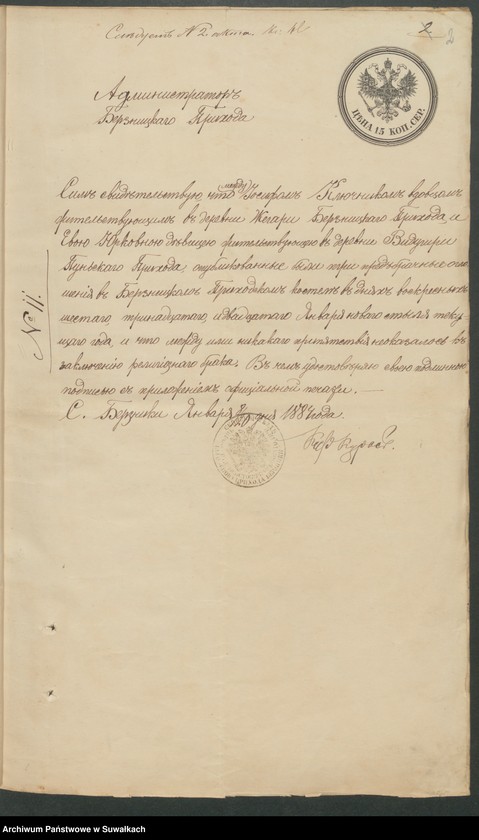 2
2
ЦѢНА 15 КОП. СЕР.
Администраторъ
Берзницкаго Прихода
Симъ свидѣтельствую, что между Іосифомъ Ключникомъ вдовцомъ
жительствующимъ въ деревни Жегари Берзницкаго Прихода, и
Евою Юрковною дѣвицею жительствующею въ деревни Видугири
Пуньскаго Прихода, опубликованные были три предбрачные огла-
шенія въ Берзницкомъ Приходскомъ костелѣ въ дняхъ воскресныхъ
шестаго, тринадцатаго, и двадцатаго Января новаго стиля теку-
щаго года, и что между ими никакаго препятствія неоказалось въ
заключенію религіознаго брака. Въ чемъ удостовѣряю свою подлинною
подписью съ приложеніемъ офиціальной печати. —
С. Берзники Января 8/20 дня 1884 года.
№ 11.
Archiwum Państwowe w Suwałkach